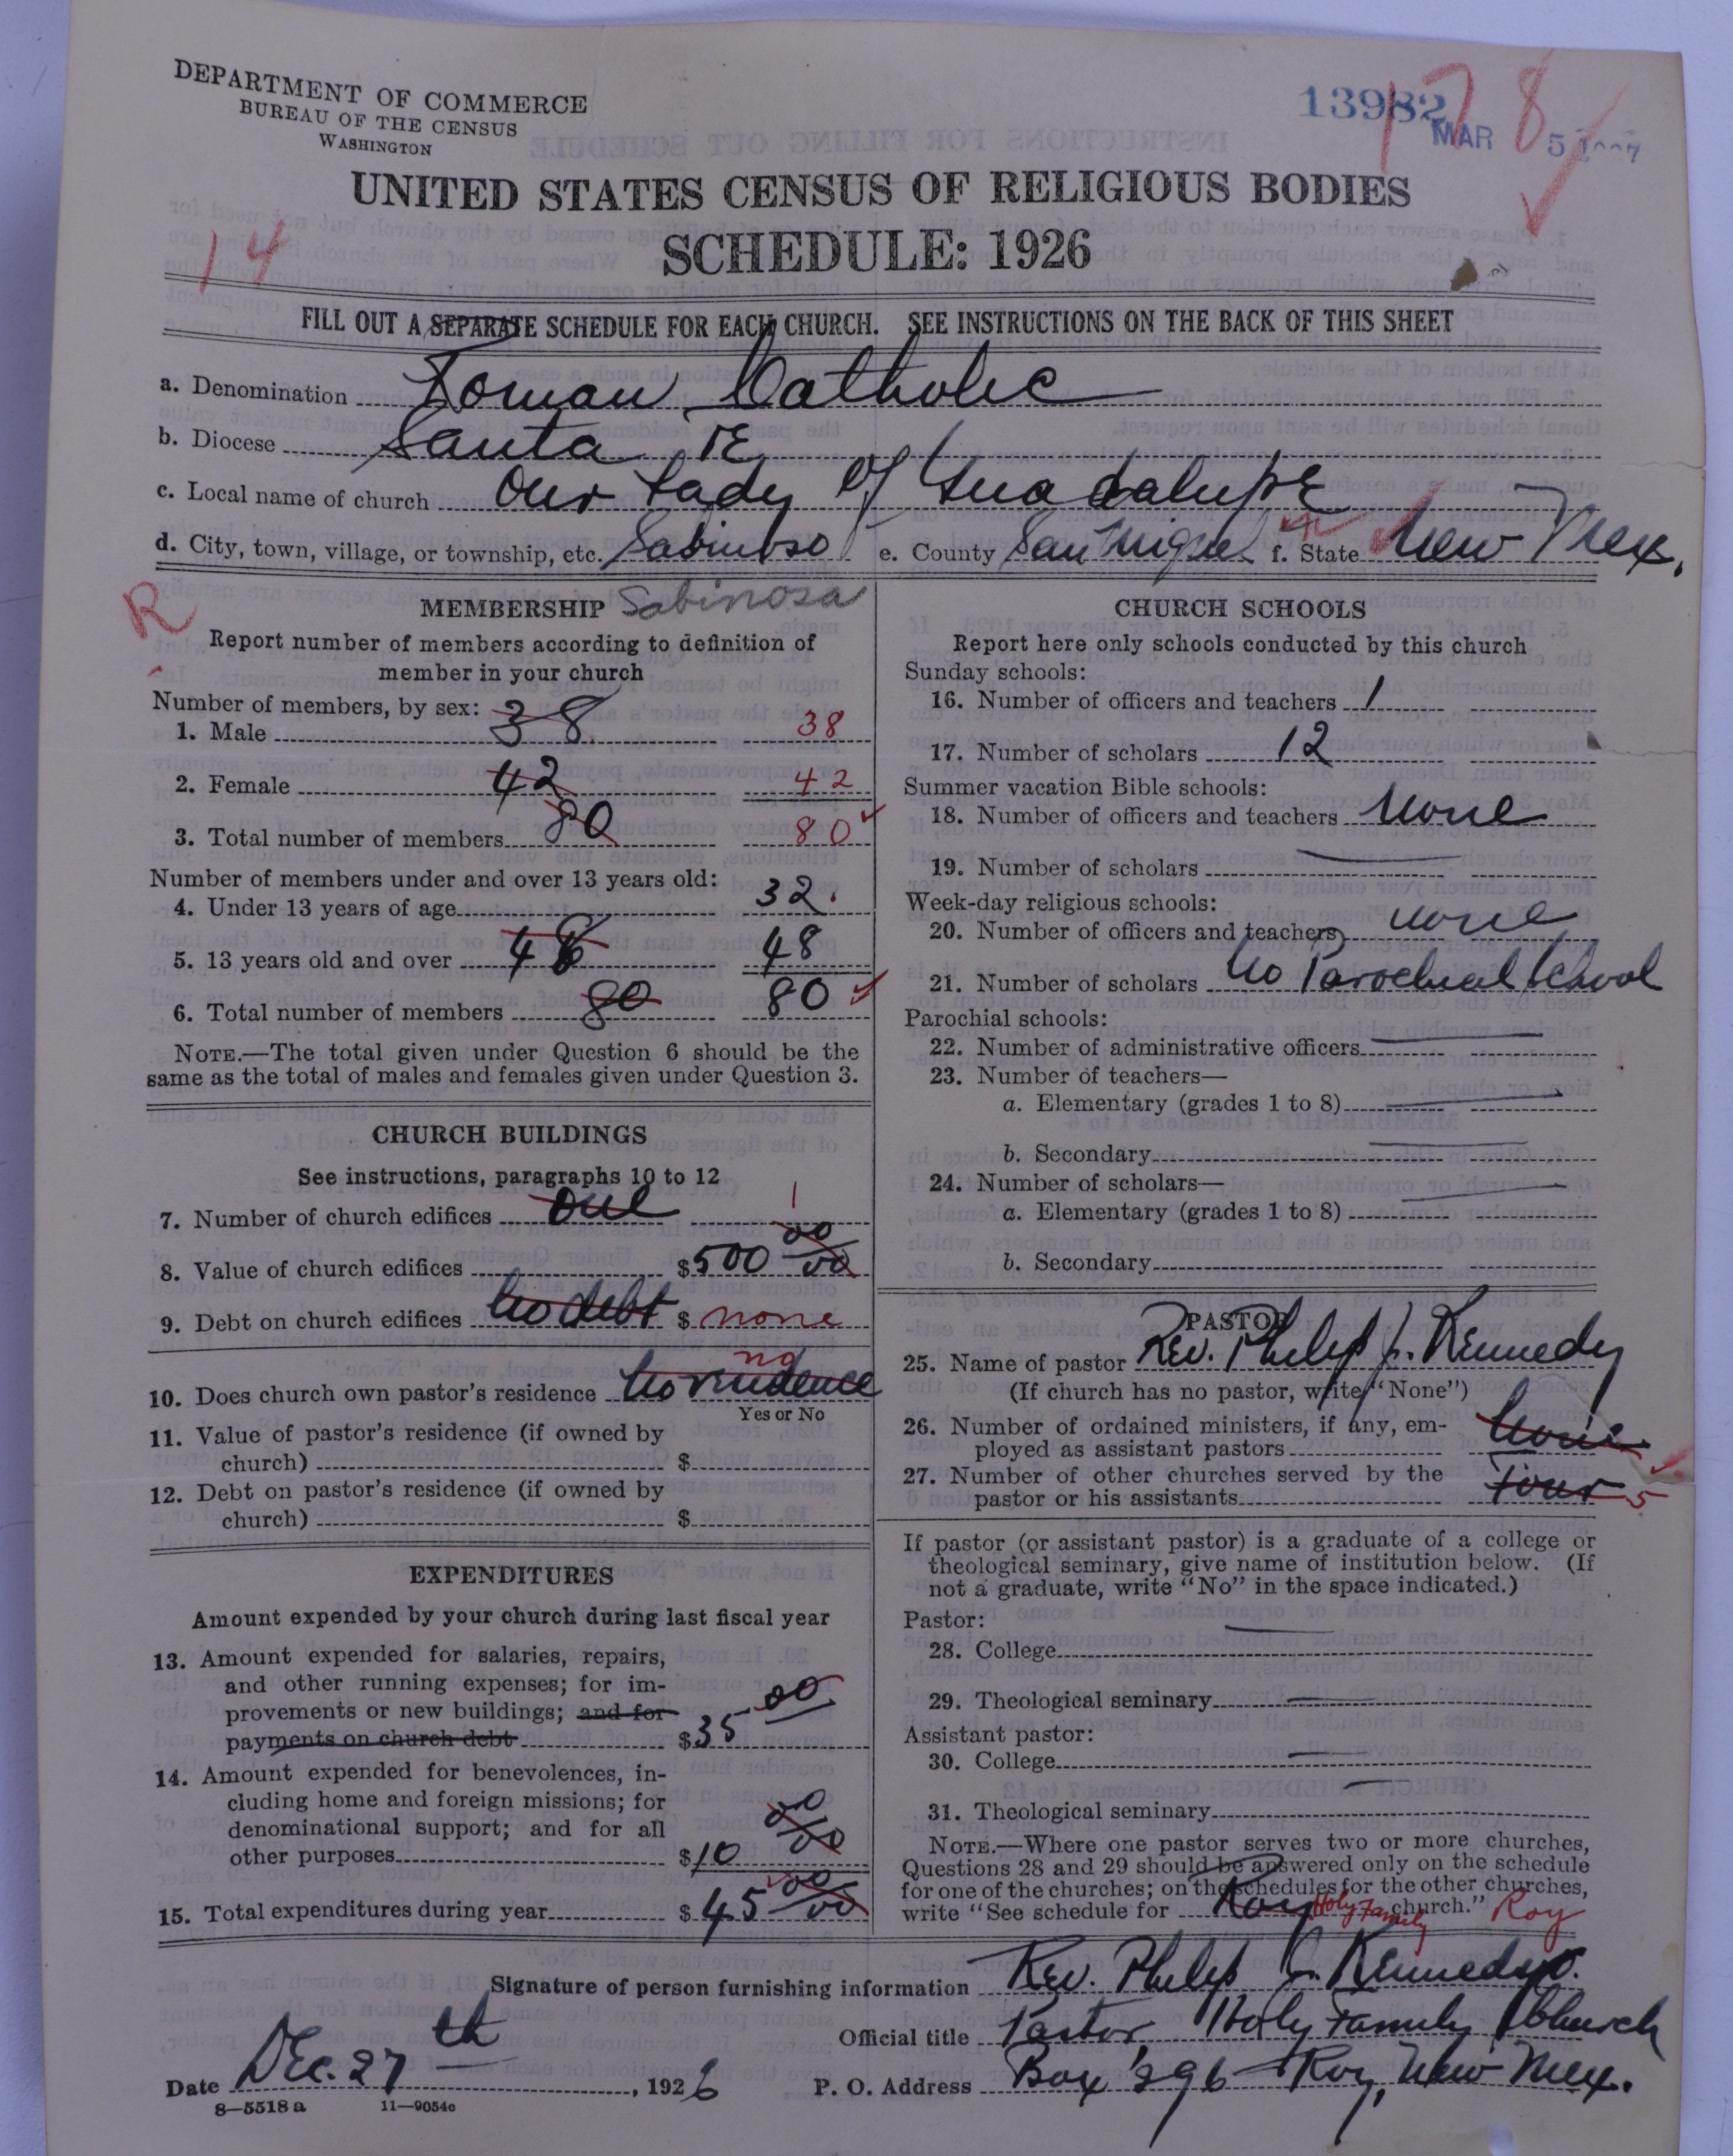 DEPARTMENT OF COMMERCE
BUREAU OF THE CENSUS
WASHINGTON
13982
178
MAR 5
UNITED STATES CENSUS OF RELIGIOUS BODIES
14
SCHEDULE: 1926
FILL OUT A SEPARATE SCHEDULE FOR EACH CHURCH. SEE INSTRUCTIONS ON THE BACK OF THIS SHEET
a. Denomination Roman Catholic
b. Diocese Santa FE
c. Local name of church Our Lady of Guadalupe
d. City, town, village, or township, etc. Sabinoso e. County San Miguel f. State New Mex.
R
MEMBERSHIP Sabinosa
Report number of members according to definition of
member in your church
Number of members, by sex:
1. Male 38 38
2. Female 42 42
3. Total number of members 80 80
Number of members under and over 13 years old:
4. Under 13 years of age 32.
5. 13 years old and over 48 48
6. Total number of members 80 80
NOTE.—The total given under Question 6 should be the
same as the total of males and females given under Question 3.
CHURCH BUILDINGS
See instructions, paragraphs 10 to 12
7. Number of church edifices one 1
8. Value of church edifices $500 00/00
9. Debt on church edifices No debt $ none
10. Does church own pastor's residence No residence no
Yes or No
11. Value of pastor's residence (if owned by
church) $
12. Debt on pastor's residence (if owned by
church) $
EXPENDITURES
Amount expended by your church during last fiscal year
13. Amount expended for salaries, repairs,
and other running expenses; for im-
provements or new buildings; and for
payments on church debt $35 00
14. Amount expended for benevolences, in-
cluding home and foreign missions; for
denominational support; and for all
other purposes $10 00/00
15. Total expenditures during year $45 00/00
CHURCH SCHOOLS
Report here only schools conducted by this church
Sunday schools:
16. Number of officers and teachers 1
17. Number of scholars 12
Summer vacation Bible schools:
18. Number of officers and teachers None
19. Number of scholars
Week-day religious schools:
20. Number of officers and teachers none
21. Number of scholars No Parochial School
Parochial schools:
22. Number of administrative officers
23. Number of teachers—
a. Elementary (grades 1 to 8)
b. Secondary
24. Number of scholars—
a. Elementary (grades 1 to 8)
b. Secondary
PASTOR
25. Name of pastor Rev. Philip J. Kennedy
(If church has no pastor, write "None")
26. Number of ordained ministers, if any, em-
ployed as assistant pastors None
27. Number of other churches served by the
pastor or his assistants Four 5
If pastor (or assistant pastor) is a graduate of a college or
theological seminary, give name of institution below. (If
not a graduate, write "No" in the space indicated.)
Pastor:
28. College
29. Theological seminary
Assistant pastor:
30. College
31. Theological seminary
NOTE.—Where one pastor serves two or more churches,
Questions 28 and 29 should be answered only on the schedule
for one of the churches; on the schedules for the other churches,
write "See schedule for Roy Holy Family church." Roy
Signature of person furnishing information Rev. Philip J. Kennedy
Official title Pastor, Holy Family Church
Date Dec. 27th, 1926 P. O. Address Box 296 - Roy, New Mex.
8—5518a 11—9054c